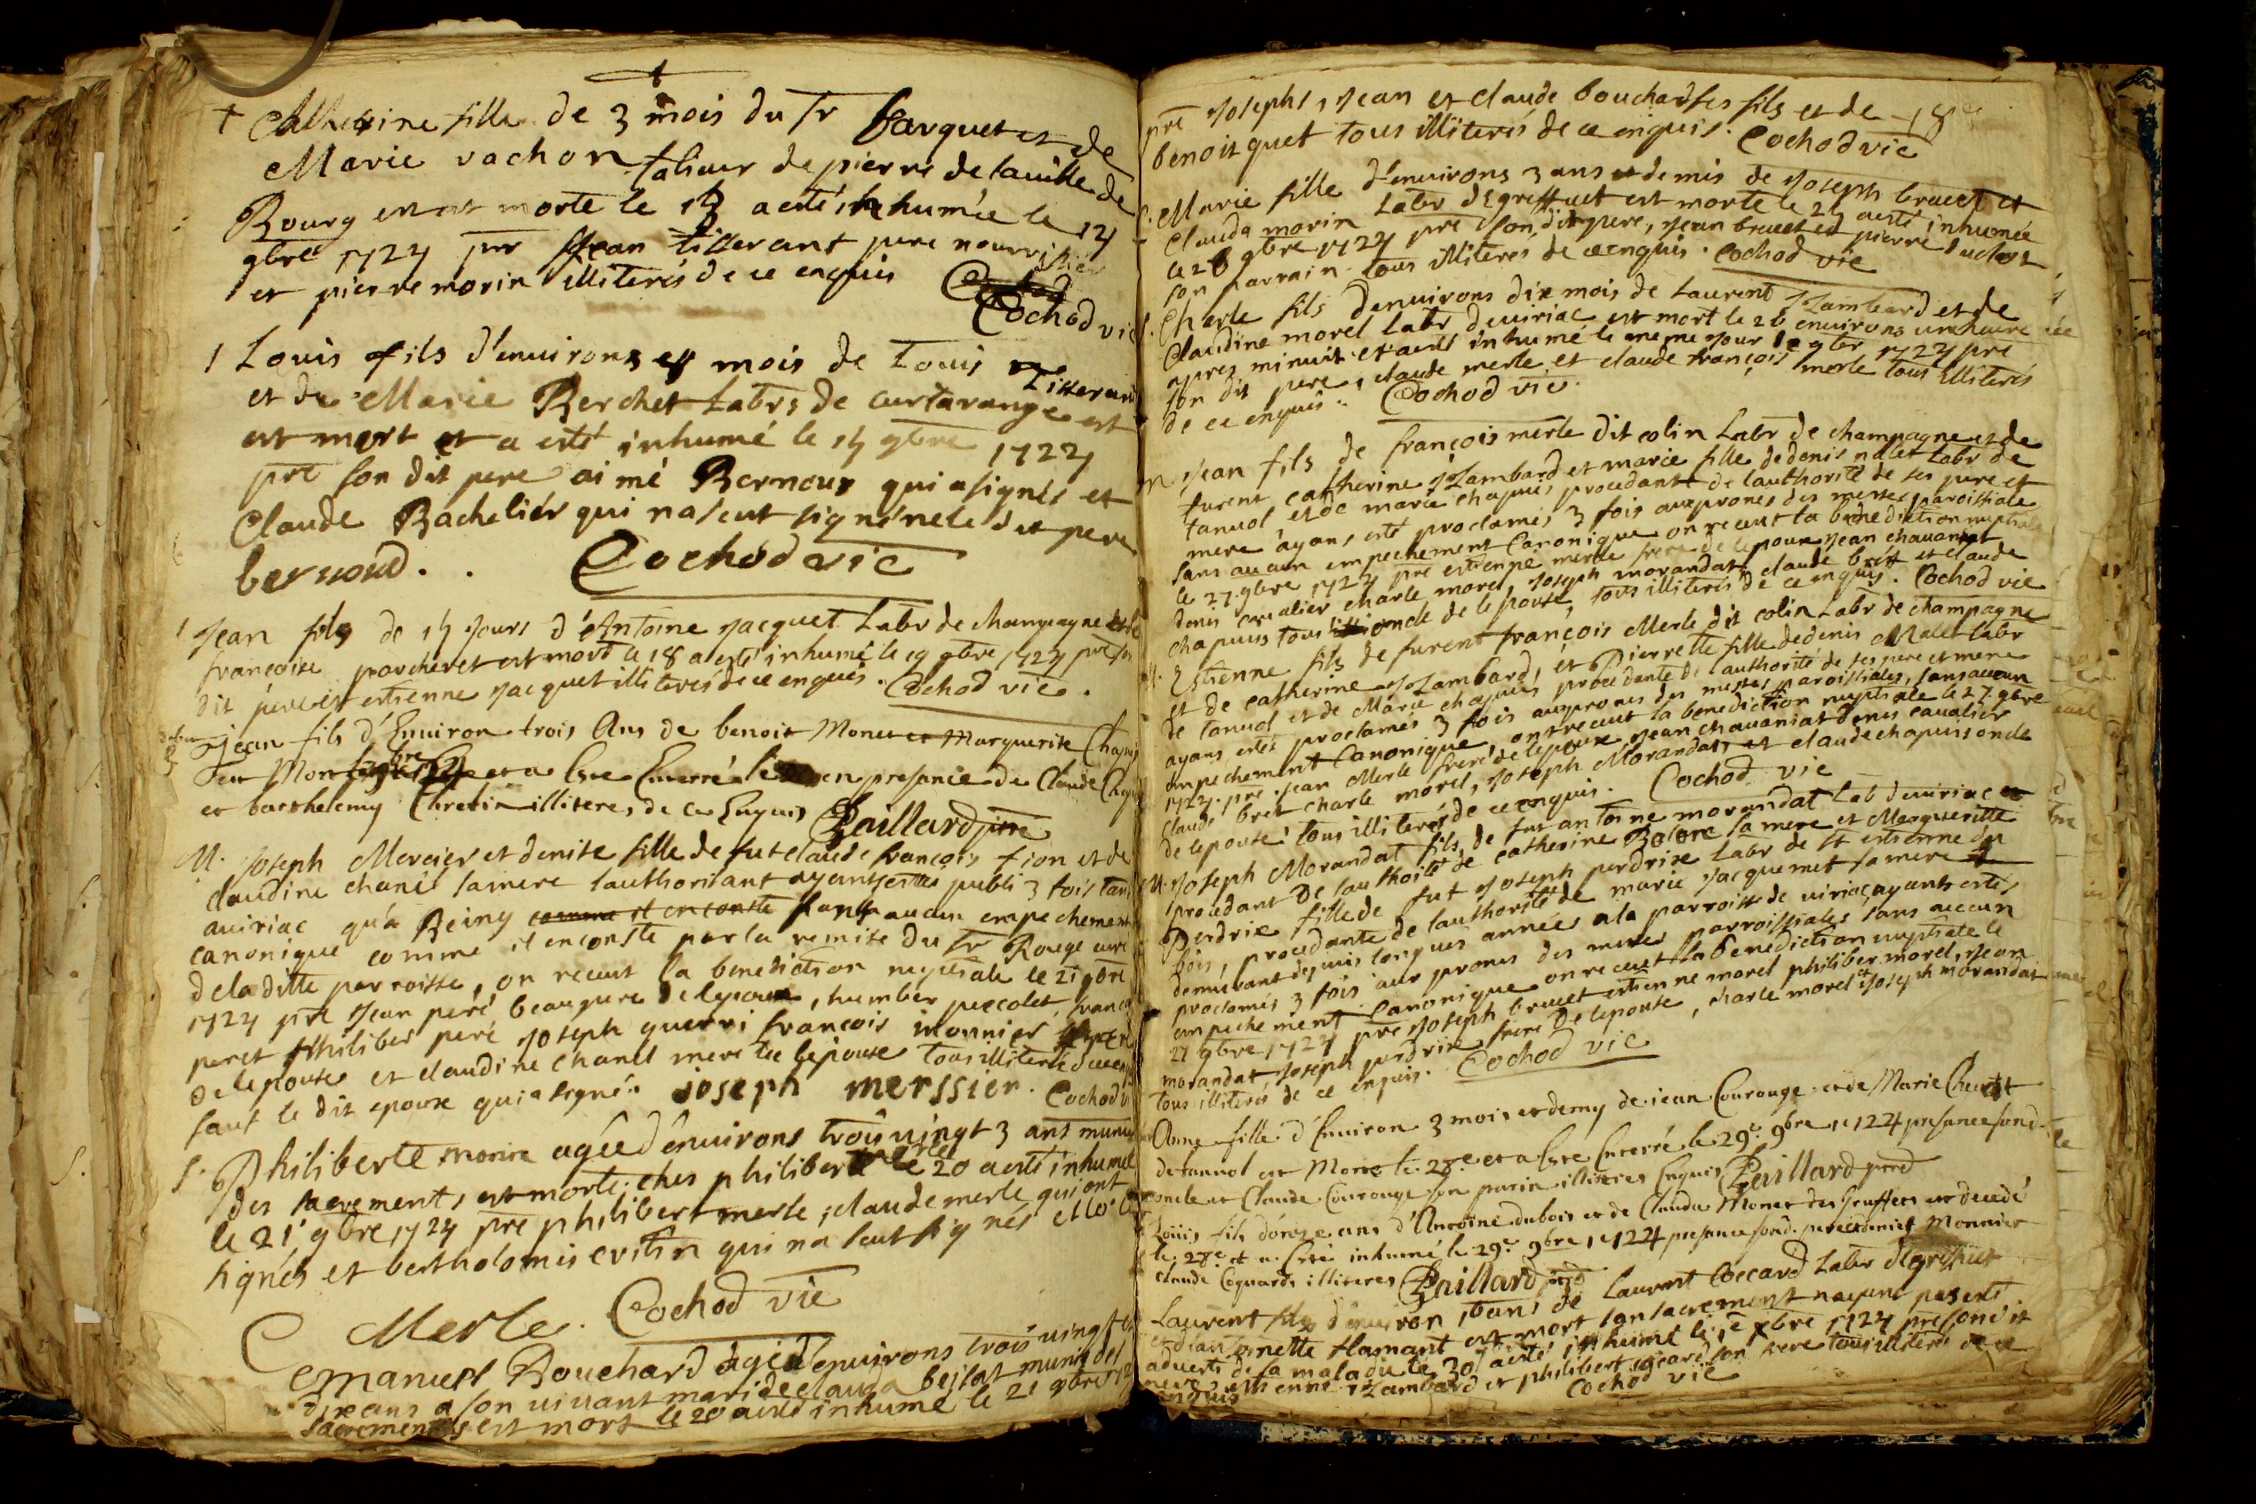 Catherine fille de 3 mois du Sr Farquet et de
Marie vachon talieur de pierre de la ville de
Bourg est morte le 13 a esté inhumée le 14
9bre 1724 pnt Jean Tisserant pere nourrisier
et pierre morin illiterés de ce enquis
Cochod vic
1 Louis fils d'environs mois de Louis Tisserant
et de Marie Berchet Labrs de curtarange est
est mort et a esté inhumé le 15 9bre 1724
pre son dit pere aimé Bernoux qui a signés et
Claude Bacheliér qui na sceut signé ne le dit pere
bernoud. Cochod vic
1 Jean fils de 15 Jours d'Antoine Jacquet Labr de champagne et de
francoise porcheret est mort le 18 a esté inhumé le 19 9bre 1724 pre son
dit pere et estienne Jacquet illiterés de ce enquis. Cochod vic.
jean fils d'Environ trois Ans de benoit Monet et Marguerite Chapuis
et a Este Enterré en presance de Claude
et barthelemy Chretin illiteres de ce Enquis Paillard
M. Joseph Mercier et denise fille de fut claude francois fion et de
claudine chanel sa mere lauthorisant ayants estés publi 3 fois tant
a viriac qu'a Reiny comme il en conste sans aucun empechement
canonique comme il en conste par la remise du Sr Rouge curé
de la ditte parroisse, on receut la benediction nuptiale le 21 9bre
1724 pre Jean peré beaupere de lepoux, humber peccolet, francois
peret philiber peré Joseph guerri francois monnier
de lepouse et claudine chanel mere de lepouse tous illiterés de ce enquis
sauf le dit epoux qui a signé. joseph merssier. Cochod vic
S. Philiberte morin agée d'environs trois vingt 3 ans munie
des sacrements est morte ches philibert merle le 20 a esté inhumée
le 21 9bre 1724 pre philibert merle, claude merle qui ont
signés et bertholomis evistin qui na seut signés
Merle. Cochod vic
Emanuel Bouchard agé d'environs trois vingt et
dix ans a son vivant mari de clauda bejlat munis des
sacrements est mort le 20 a esté inhumé le 21 9bre 1724
pre Joseph, Jean et claude bouchard ses fils et de
benoit guet tous illiterés de ce enquis. Cochod vic
S. Marie fille d'environs 3 ans et demis de Joseph brevet et
Clauda morin Labr d'Egreffiet est morte le 25 a esté inhumée
le 26 9bre 1724 pre son dit pere, Jean brevet et pierre duclos
son parrain tous illiterés de ce enquis. Cochod vic
S. Charle fils denvirons dix mois de Laurent Jambard et de
Claudine morel Labr de viriac est mort le 26 environs une heure
apres minuit et a esté inhumé le meme jour 9bre 1724 pre
son dit pere, claude merle et claude françois merle tous illiterés
de ce enquis. Cochod vic.
m. Jean fils de françois merle dit colin Labr de champagne et de
furent catherine Jambard et marie fille de denis malet Labr de
tanvol et de marie chapuis procedante de lauthorité de ses pere et
mere ayans esté proclamés 3 fois aux prones des messes paroissiale
sans aucun empechement Canonique on receut la benediction nuptiale
le 27 9bre 1724 pre estienne merle frere de lepoux Jean chavaniat
denis cavalier charle morel, Joseph morandat claude bret et claude
chapuis tous oncle de lepouse, tous illiterés de ce enquis. Cochod vic
M. Estienne fils de furent françois Merle dit colin Labr de champagne
et de catherine Jambard, et Pierrette fille de denis Malet Labr
de tanvol et de Marie chapuis procedante de lauthorité de ses pere et mere
ayans estés proclamés 3 fois aux prones des messes paroissiales, sans aucun
empechement Canonique, ont receut la benediction nuptiale le 27 9bre
1724 pre Jean Merle frere de lepoux Jean chavaniat denis cavalier
claude bret charle morel, Joseph Morandat, et claude chapuis oncle
de lepouse tous illiterés de ce enquis. Cochod vic
M. Joseph Morandat fils de fut antoine morandat Lab de viriac et
procedant De lauthorité de catherine Bolore sa mere et Marguerite
Perdrix fille de fut Joseph perdrix Labr de St estienne du
bois, procedante de lauthorité de marie Jacquemet sa mere
demeurant depuis longues années a la parroisse de viriac, ayants estés
proclamés 3 fois aux prones des messes parroissiales sans aucun
empechement Canonique on receut la Benediction nuptiale le
27 9bre 1724 pre Joseph brevet estienne morel philiber morel, Jean
morandat Joseph perdrix frere De lepouse, charle morel et Joseph morandat
tous illiterés de ce enquis. Cochod vic
Anne fille d'Environ 3 mois et demy de jean Courouge et de Marie Chevret
de tanvol est Morte le 28e et a Este Enterré le 29e 9bre 1724 presance sond.
oncle et Claude Courouge son parin illiteres Enquis Paillard
Loüis fils d'onze ans d'Antoine dubois et de Clauda Monet des Greffiets est decedé
le 28e et a Esté inhumé le 29e 9bre 1724 presance sond. pere denis Monnier
claude Coquard illiteres Paillard
Laurent fils d'environ ans de Laurent Coccard Labr d'Egreffiet
et d'antoinette flamant est mort sans sacrement nayans pas esté
adverti de sa maladie le 30 a esté inhumé le 1e xbre 1724 pre son dit
pere estienne Jambard et philibert cocard son frere tous illiterés de ce
enquis Cochod vic